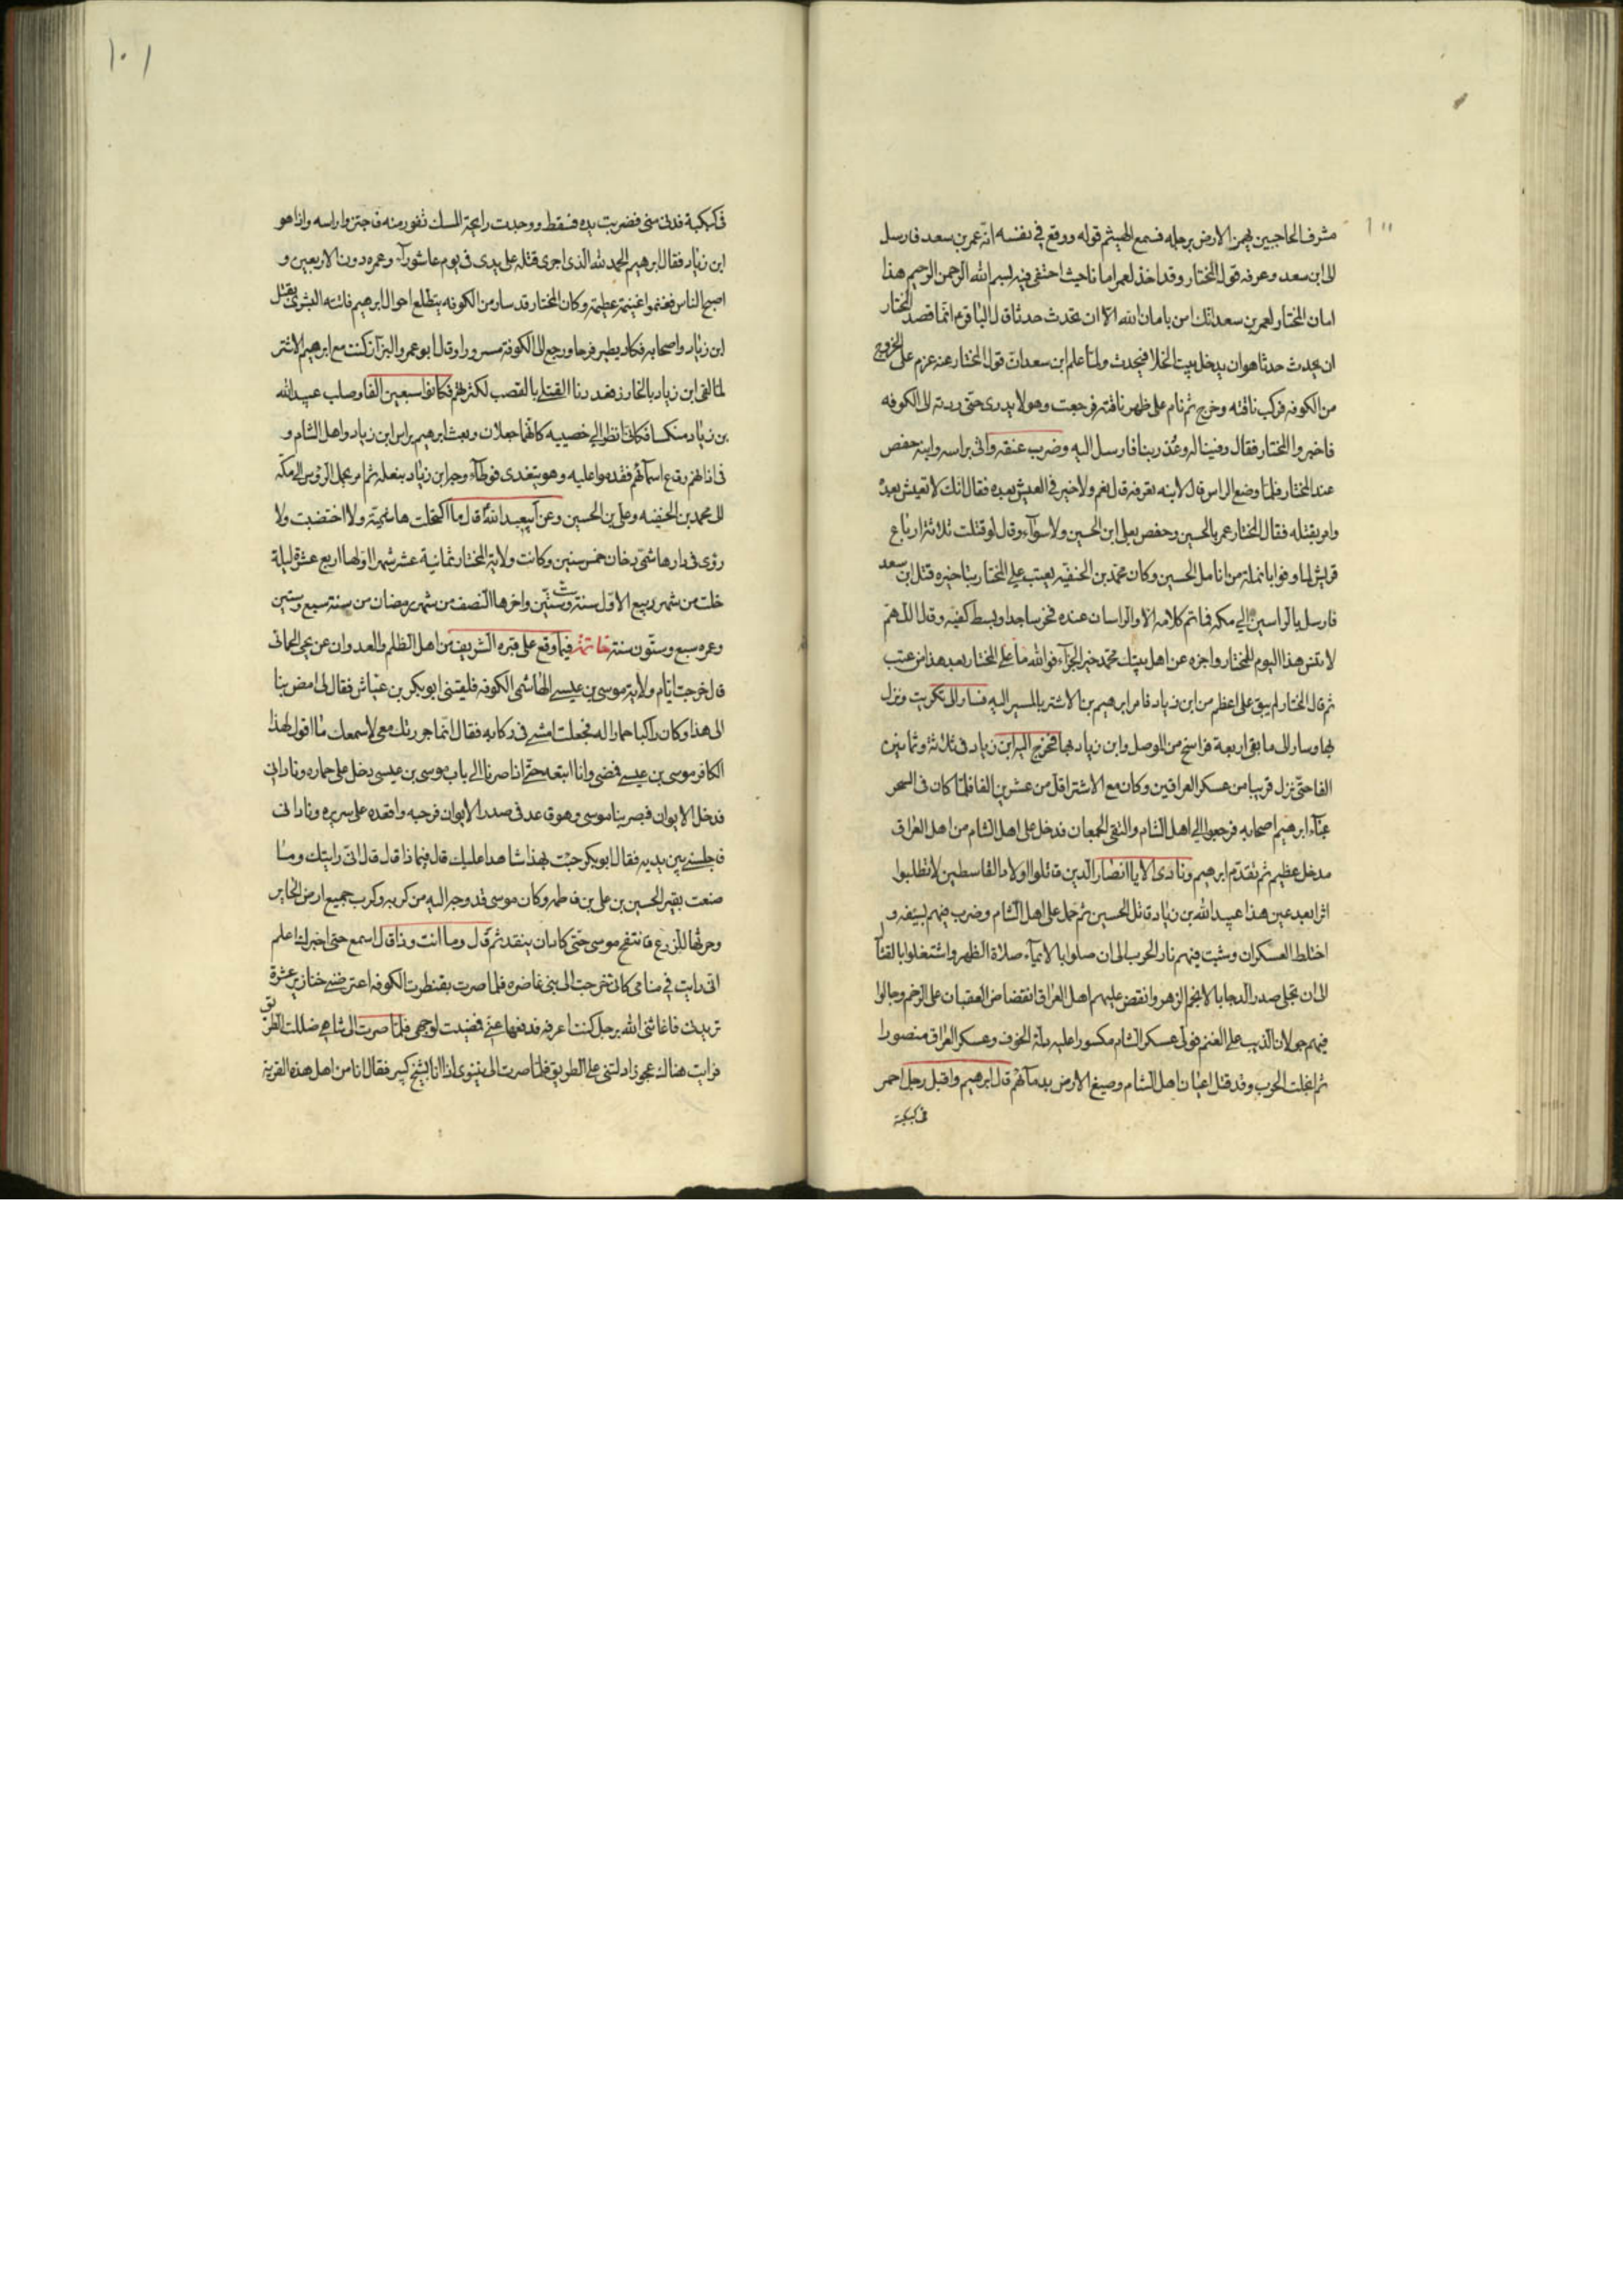 مشرف الحاجبين يهمز الارض برجله فسمع الهيثم قوله ووقع في نفسه انه عمر بن سعد فارسل
الى ابن سعد وعرفه قول المختار وقد اخذ لعمر امانا حيث اختفى فيه بسم الله الرحمن الرحيم هذا
امان المختار لعمر بن سعد انك امن بامان الله الا ان تحدث حدثا قال الباقر ع انما قصد المختار
ان يحدث حدثا هو ان يدخل بيت الخلا فيحدث ولما علم ابن سعد ان قول المختار عنه عزم على الخروج
من الكوفه فركب ناقته وخرج ثم نام على ظهر ناقته فرجعت وهو لا يدرى حتى ردته الى الكوفه
فاخبروا المختار فقال وفينا له وغدر بنا فارسل اليه وضرب عنقه واتى براسه وابنه حفص
عند المختار فلما وضع الراس قال لابنه تعرفه قال نعم ولا خير في العيش بعده فقال انك لا تعيش بعده
وامر بقتله فقال المختار عمر بالحسين وحفص بعلى ابن الحسين ولا سوآء وقال لو قتلت ثلاثة ارباع
قريش لما وفوا بانملة من انامل الحسين وكان محمد بن الحنفيه يعتب على المختار بتاخيره قتل ابن سعد
فارسل بالراسين الى مكه فما تم كلامه الا والراسان عنده فخر ساجدا وبسط كفيه وقال اللهم
لا تنس هذا اليوم للمختار واجزه عن اهل بيتك محمد خير الجزآء فوالله ما على المختار بعد هذا من عتب
ثم قال المختار لم يبق على اعظم من ابن زياد فامر ابرهيم بن الاشتر بالمسير اليه فسار الى تكريت ونزل
بها وسار الى ما بقى اربعة فراسخ من الموصل وابن زياد بها فخرج اليه ابن زياد فى ثلاثة وثمانين
الفا حتى نزل قريبا من عسكر العراقين وكان مع الاشتر اقل من عشرين الفا فلما كان فى السحر
عبّاء ابرهيم اصحابه فرجعوا الى اهل الشام والتقى الجمعان فدخل على اهل الشام من اهل العراق
مدخل عظيم ثم تقدم ابرهيم ونادى الا يا انصار الدين قاتلوا اولاد القاسطين لا تطلبوا
اثرا بعد عين هذا عبيد الله بن زياد قاتل الحسين ثم حمل على اهل الشام وضرب فيهم بسيفه و
اختلط العسكران وشبت فيهم نار الحرب الى ان صلوا بالايمآء صلاة الظهر واشتغلوا بالقتال
الى ان تجلى صدر الدجا بالانجم الزهر وانقض عليهم اهل العراق انقضاض العقبان على الرخم وجالوا
فيهم جولان الذيب على الغنم فولى عسكر الشام مكسورا عليه ذلة الخوف وعسكر العراق منصورا
ثم انجلت الحرب وقد قتل اعيان اهل الشام وصبغ الارض بدمآئهم قال ابرهيم واقبل رجل احمر
فى كبكبة
١٠١
فى كبكبة فدنى منى فضربت يده فسقط ووجدت رايحة المسك تفور منه فاجتزوا راسه واذا هو
ابن زياد فقال ابرهيم الحمد لله الذى اجرى قتله على يدى فى يوم عاشورآء وعمره دون الاربعين و
اصبح الناس فغنموا غنيمة عظيمة وكان المختار قد سار من الكوفه يتطلع احوال ابرهيم فاتته البشرى بقتل
ابن زياد واصحابه فكاد يطير فرحا ورجع الى الكوفة مسرورا وقال ابو عمرو البزآز كنت مع ابرهيم الاشتر
لما لقى ابن زياد بالخازر فعددنا القتلى بالقصب لكثرتهم فكانوا سبعين الفا وصلب عبيد الله
بن زياد منكسا فكانى انظر الى خصييه كانهما جعلان وبعث ابرهيم براس ابن زياد واهل الشام و
فى اذانهم رقاع اسمآئهم فقدموا عليه وهو يتغدى فوطآء وجه ابن زياد بنعله ثم امر بحمل الرؤس الى مكة
الى محمد بن الحنفيه وعلى بن الحسين وعن ابى عبد الله قال ما اكتحلت هاشمية ولا اختضبت ولا
رؤى فى دار هاشمى دخان خمس سنين وكانت ولاية المختار ثمانية عشر شهرا اولها اربع عشرة ليلة
خلت من شهر ربيع الاول سنة ست وستين واخرها النصف من شهر رمضان من سنة سبع وستين
وعمره سبع وستون سنة خاتمة فيما وقع على قبره الشريف من اهل الظلم والعدوان عن يحيى الحمانى
قال خرجت ايام ولاية موسى بن عيسى الهاشمى الكوفه فلقينى ابو بكر بن عياش فقال لى امض بنا
الى هذا وكان راكبا حمارا له فجعلت امشى فى ركابه فقال انما جررتك معى لاسمعك ما اقول لهذا
الكافر موسى بن عيسى فمضى وانا اتبعه حتى اذا صرنا الى باب موسى بن عيسى دخل على حماره ونادانى
فدخل الايوان فبصر بنا موسى وهو قاعد فى صدر الايوان فرحبه واقعده على سريره ونادانى
فاجلسنى بين يديه فقال ابو بكر جئت بهذا شاهدا عليك قال فيما ذا قال قال انى رايتك وما
صنعت بقبر الحسين بن على بن فاطمه وكان موسى قد وجه اليه من كربه وكرب جميع ارض الحاير
وحرثها للزرع فانتفخ موسى حتى كاد ان ينقد ثم قال وما انت وذا قال اسمع حتى اخبرك اعلم
انى رايت فى منامى كانى خرجت الى بنى غاضره فلما صرت بقنطرة الكوفه اعترضنى خنازير عشرة
تريدنى فاغاثنى الله برجل كنت اعرفه فدفعها عنى فمضيت لوجهى فلما صرت الى شاهى ضللت الطريق
فرايت هناك عجوزا دلتنى على الطريق فلما صرت الى نينوى اذا انا بشيخ كبير فقال انا من اهل هذه القرية